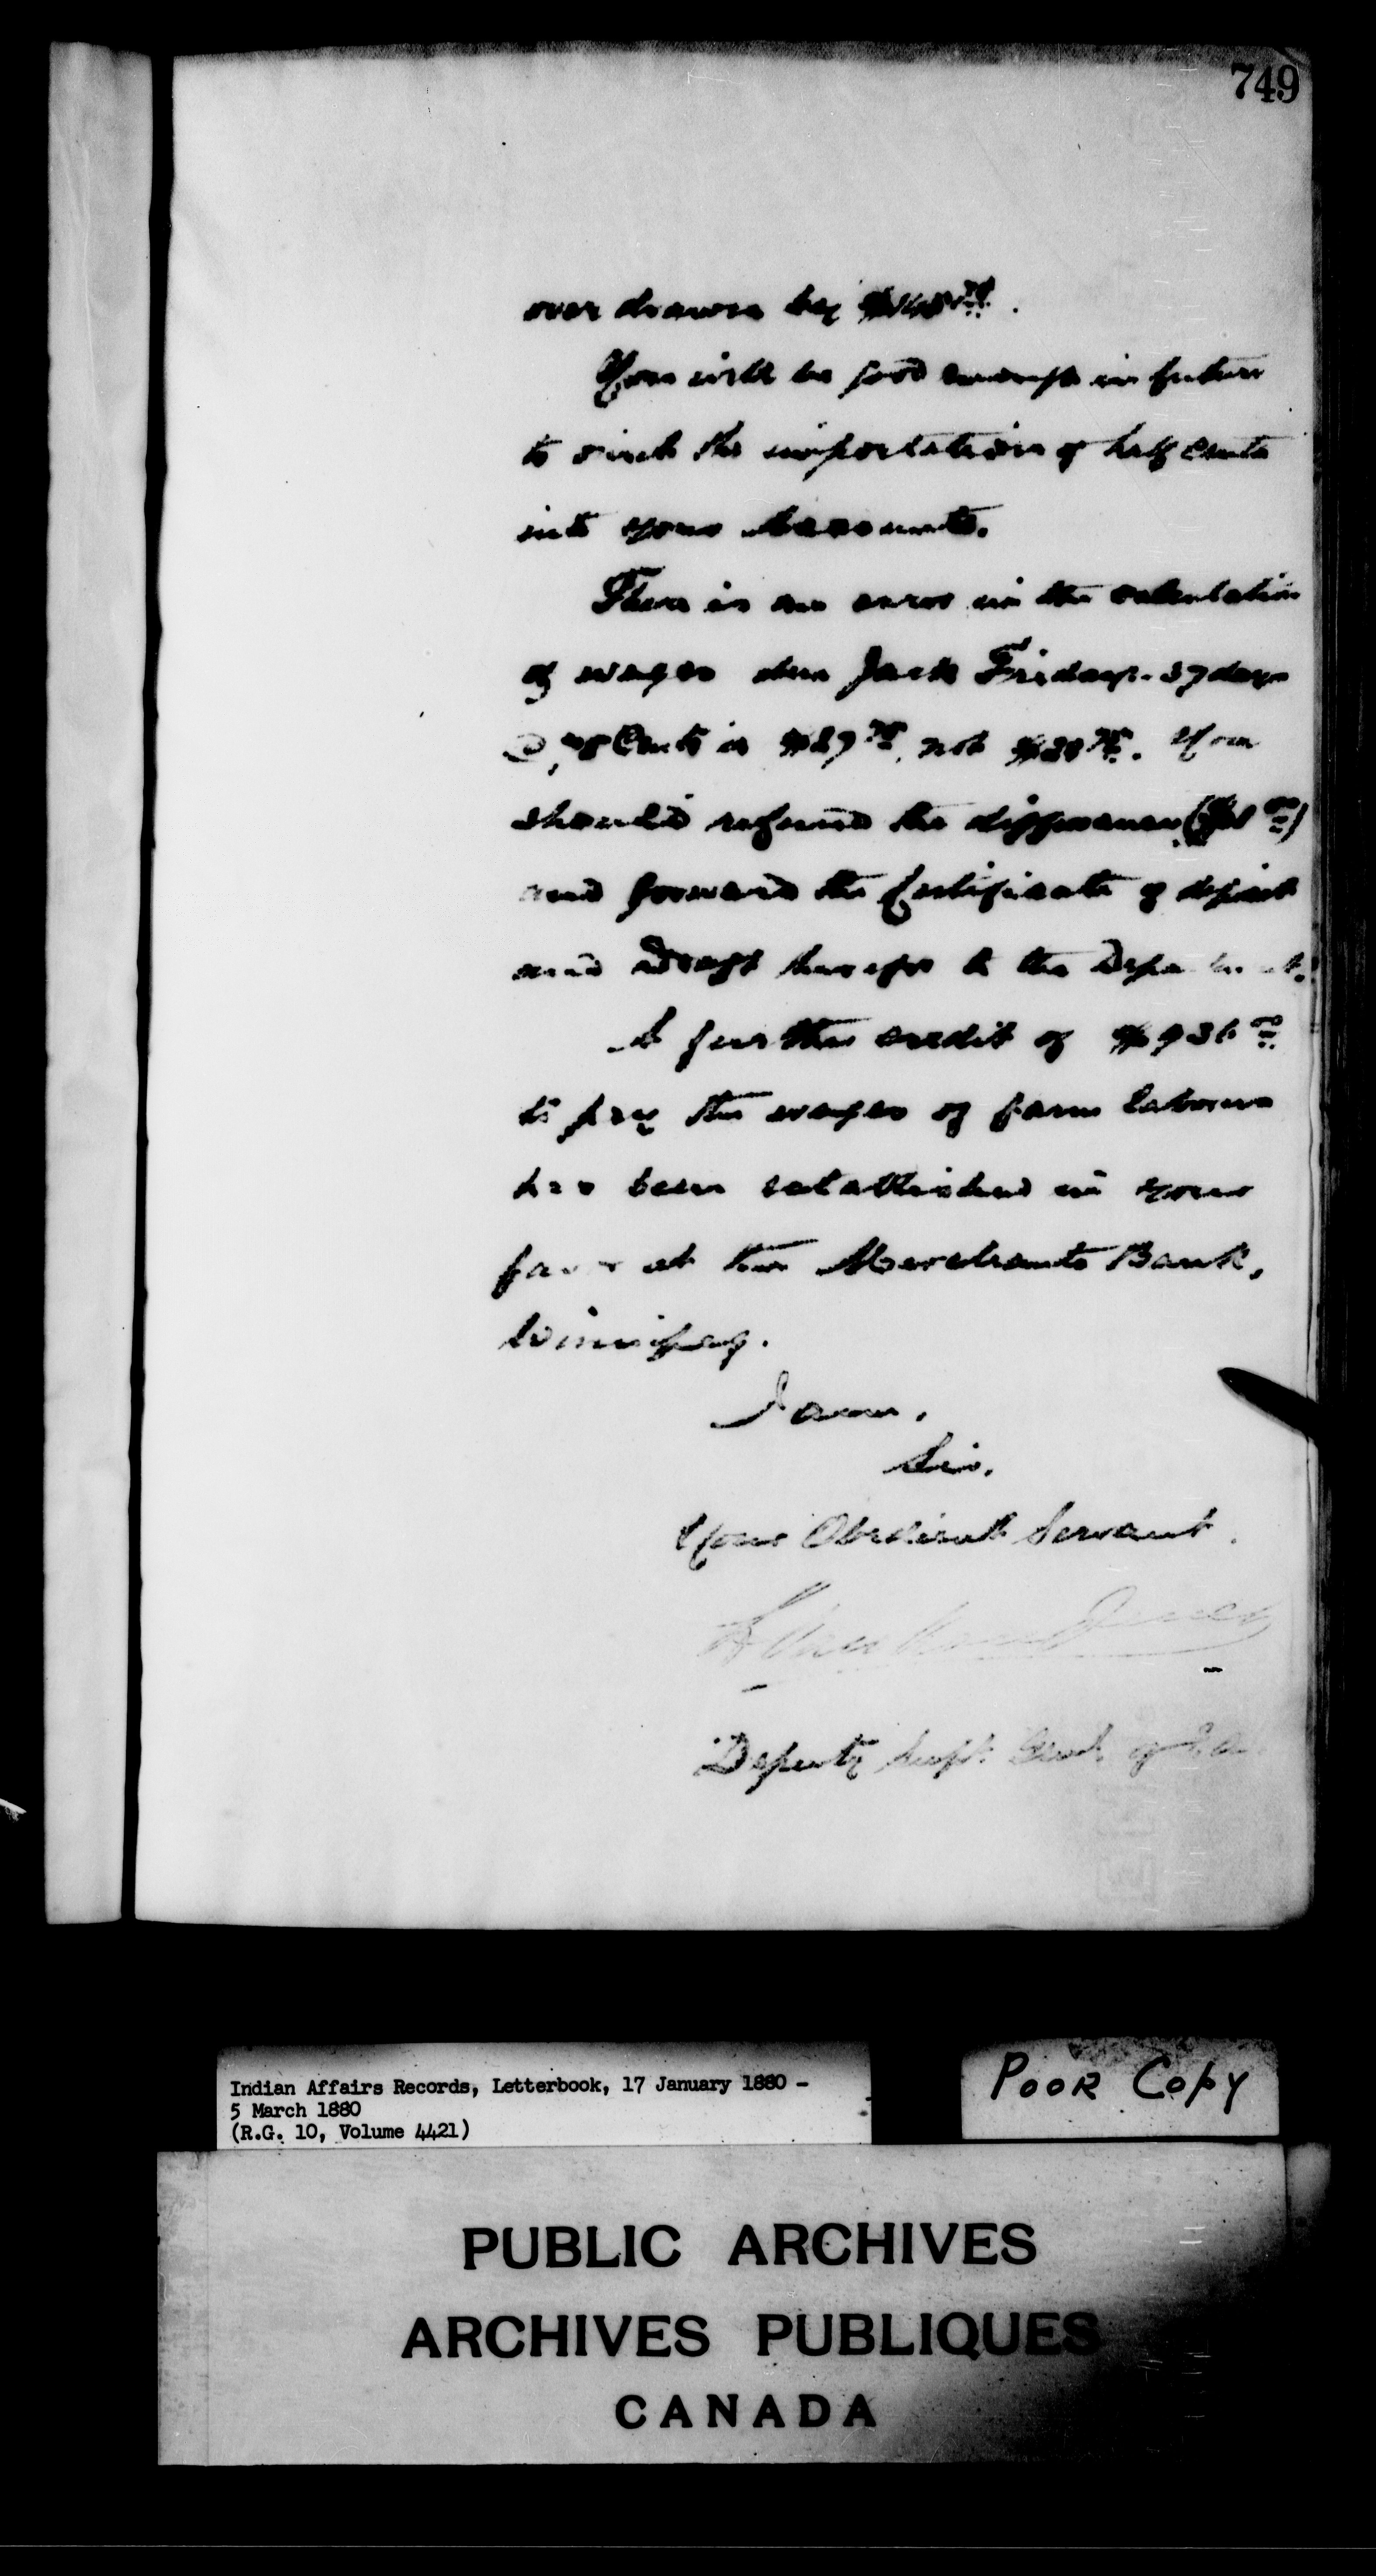 749
over drawn by
You will be good enough in future
to omit the importation of half Cents
into your Accounts.
There is an error in the calculation
of wages due Jack Friday. 37 days
@ 75 Cents is $27 75, not $28 75. You
should refund the difference ($1 00)
and forward the Certificate of deposit
and Draft therefor to the Department.
A further credit of $936 00
to pay the wages of farm labourers
has been established in your
favor at the Merchants Bank,
Winnipeg.
I am,
Sir,
Your Obedient Servant.
Deputy Supt. Genl. of I. A.
Indian Affairs Records, Letterbook, 17 January 1880 -
5 March 1880
(R.G. 10, Volume 4421)
POOR COPY
PUBLIC ARCHIVES
ARCHIVES PUBLIQUES
CANADA